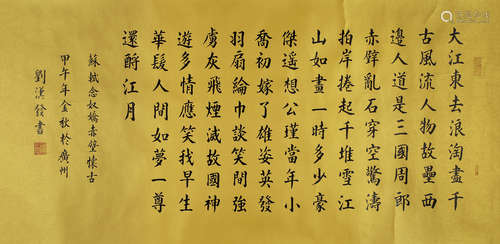 大江東去浪淘盡千
古風流人物故壘西
邊人道是三國周郎
赤壁亂石穿空驚濤
拍岸捲起千堆雪江
山如畫一時多少豪
傑遙想公瑾當年小
喬初嫁了雄姿英發
羽扇綸巾談笑間強
虜灰飛煙滅故國神
遊多情應笑我早生
華髮人間如夢一尊
還酹江月
蘇軾念奴嬌赤壁懷古
甲午年金秋於廣州
劉漢書